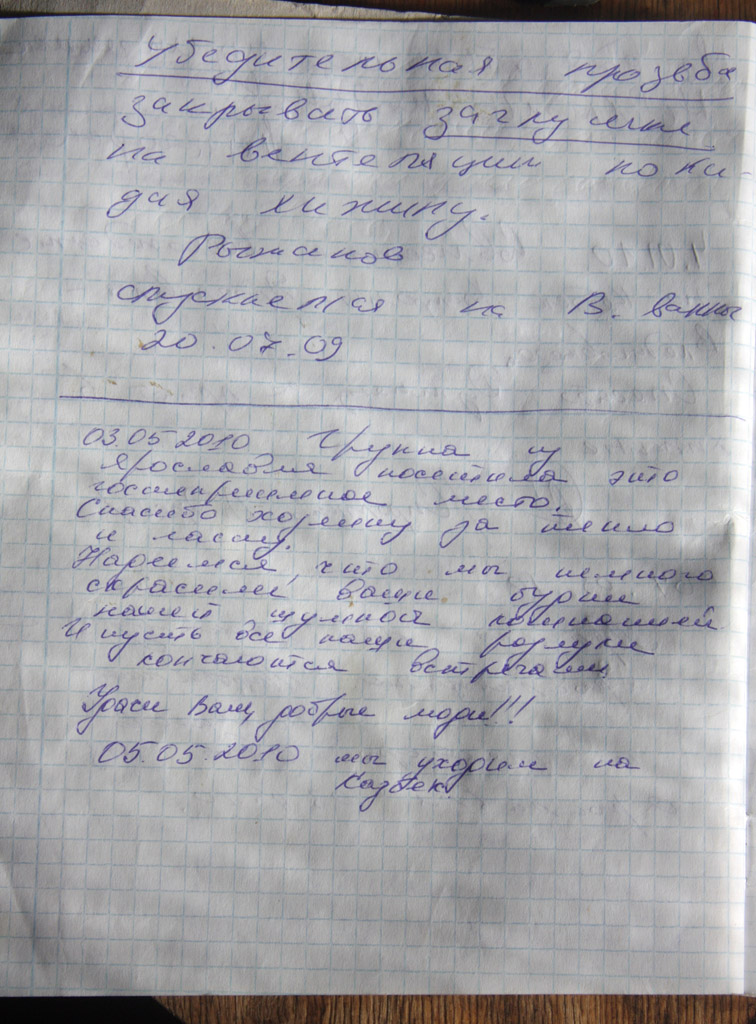 Убедительная прозьба
закрывать заглушки
на вентеляции поки-
дая хижину.
Рыжанов
спускаемся на В. ванны
20.07.09
03.05.2010 Группа из
Ярославля посетила это
гостеприимное место.
Спасибо хозяину за тепло
и ласку.
Надеемся, что мы немного
скрасили ваши будни
нашей шумной компанией.
И пусть все наши разлуки
кончаются встречами
Храси Вац добрые люди!!!
05.05.2010 мы уходим на
Казбек.